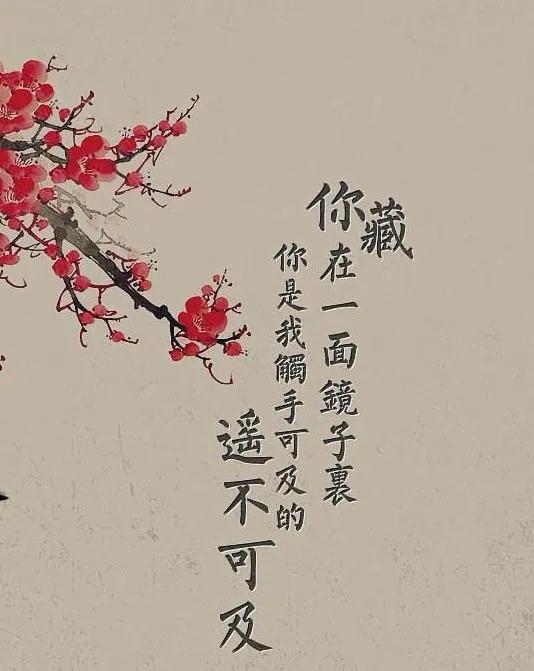 你藏
在一面鏡子裏
你是我觸手可及的
遥不可及